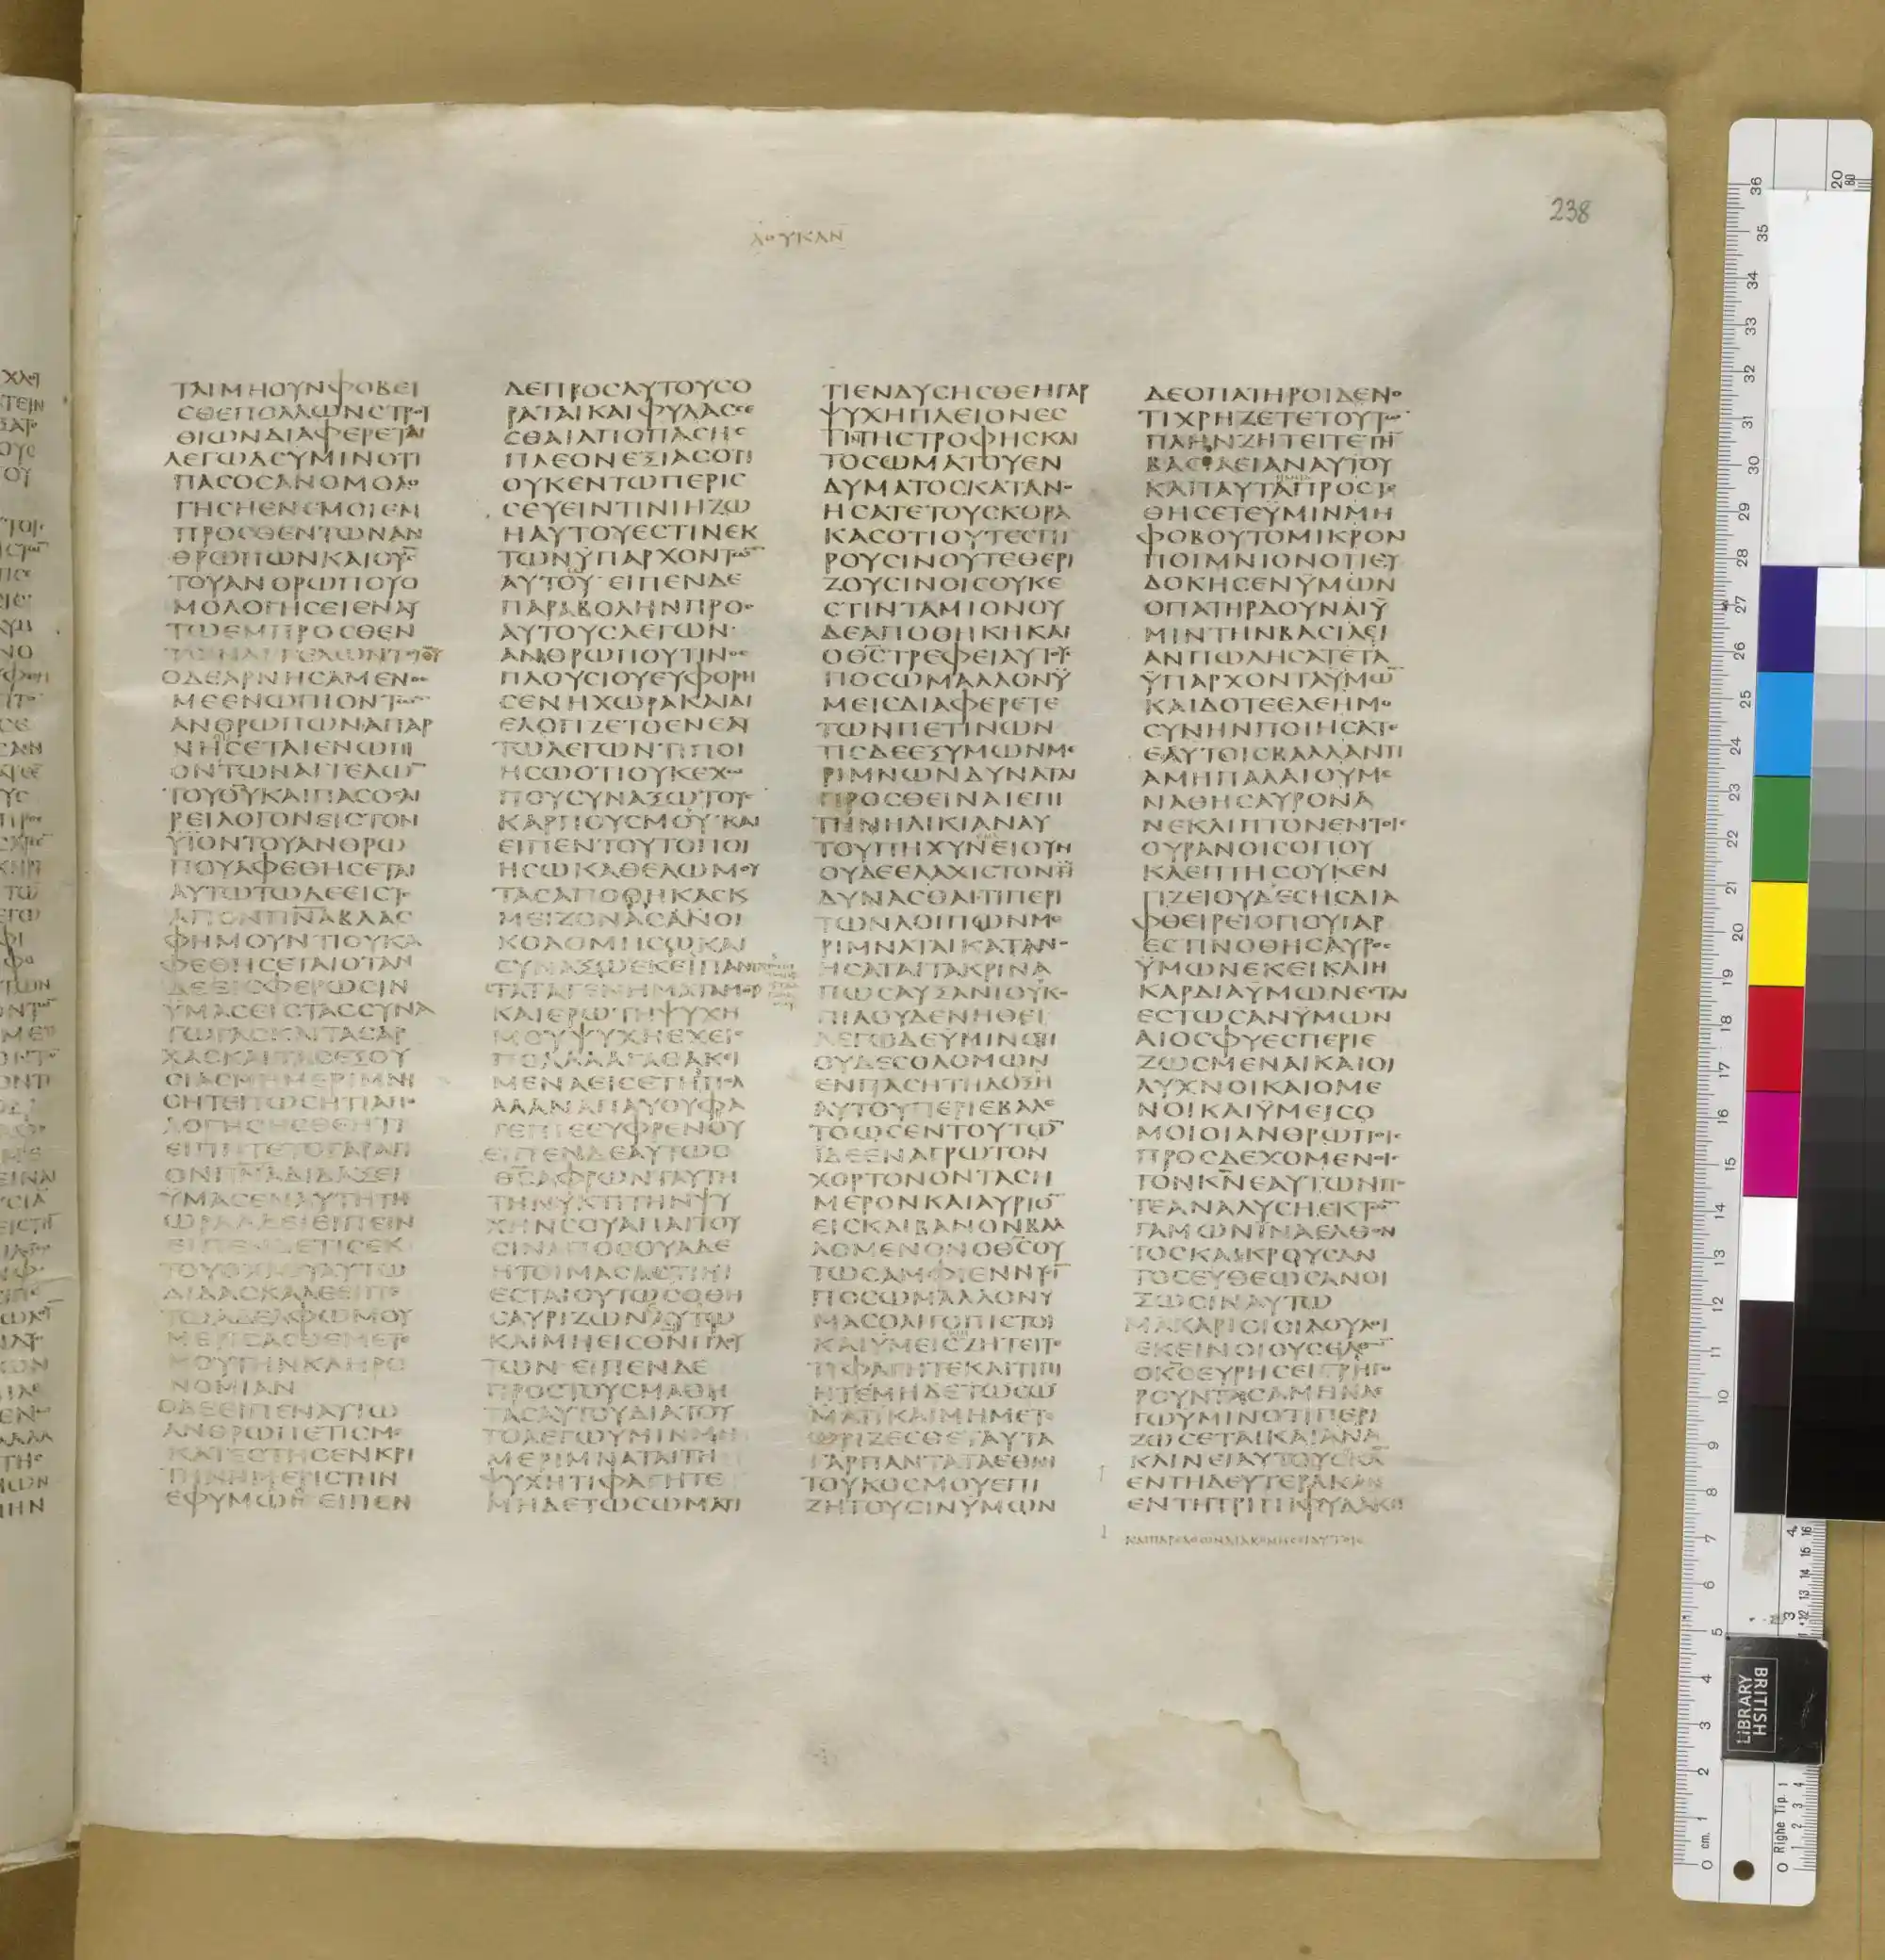 ΛΟΥΚΑΝ
238
ΤΑΙΜΗΟΥΝΦΟΒΕΙ
ϹΘΕΠΟΛΛΩΝϹΤΡΟΥ
ΘΙΩΝΔΙΑΦΕΡΕΤΑΙ
ΛΕΓΩΔΕΫΜΙΝΟΤΙ
ΠΑϹΟϹΑΝΟΜΟΛΟ
ΓΗϹΗΕΝΕΜΟΙΕΜ
ΠΡΟϹΘΕΝΤΩΝΑΝ
ΘΡΩΠΩΝΚΑΙΟΥϹ
ΤΟΥΑΝΟΡΩΠΟΥΟ
ΜΟΛΟΓΗϹΕΙΕΝΑΥ
ΤΩΕΜΠΡΟϹΘΕΝ
ΤΩΝΑΓΓΕΛΩΝΤΟΥΘΥ
ΟΔΕΑΡΝΗϹΑΜΕΝΟϹ
ΜΕΕΝΩΠΙΟΝΤΩΝ
ΑΝΘΡΩΠΩΝΑΠΑΡ
ΝΗϹΕΤΑΙΕΝΩΠΙ
ΟΝΤΩΝΑΓΓΕΛΩ̅
ΤΟΥΘΥΚΑΙΠΑϹΟϹΑΙ
ΡΕΙΛΟΓΟΝΕΙϹΤΟΝ
ΫΙΟΝΤΟΥΑΝΘΡΩ
ΠΟΥΑΦΕΘΗϹΕΤΑΙ
ΑΥΤΩΤΩΔΕΕΙϹΤΟ
ΑΓΙΟΝΠΝΑΒΛΑϹ
ΦΗΜΟΥΝΤΙΟΥΚΑ
ΦΕΘΗϹΕΤΑΙΟΤΑΝ
ΔΕΕΙϹΦΕΡΩϹΙΝ
ΫΜΑϹΕΙϹΤΑϹϹΥΝΑ
ΓΩΓΑϹΚΑΙΤΑϹΑΡ
ΧΑϹΚΑΙΤΑϹΕΞΟΥ
ϹΙΑϹΜΗΜΕΡΙΜΝΗ
ϹΗΤΕΠΩϹΗΤΙΑΠΟ
ΛΟΓΗϹΗϹΘΕΗΤΙ
ΕΙΠΗΤΕΤΟΓΑΡΑΓΙ
ΟΝΠΝΑΔΙΔΑΞΕΙ
ΫΜΑϹΕΝΑΥΤΗΤΗ
ΩΡΑΑΔΕΙΕΙΠΕΙΝ
ΕΙΠΕΝΔΕΤΙϹΕΚ
ΤΟΥΟΧΛΟΥΑΥΤΩ
ΔΙΔΑϹΚΑΛΕΕΙΠΕ
ΤΩΑΔΕΛΦΩΜΟΥ
ΜΕΡΙϹΑϹΘΕΜΕΤΕ
ΜΟΥΤΗΝΚΛΗΡΟ
ΝΟΜΙΑΝ
ΟΔΕΕΙΠΕΝΑΥΤΩ
ΑΝΘΡΩΠΕΤΙϹΜΕ
ΚΑΤΕϹΤΗϹΕΝΚΡΙ
ΤΗΝΗΜΕΡΙϹΤΗΝ
ΕΦΥΜΩ̅ ΕΙΠΕΝ
ΔΕΠΡΟϹΑΥΤΟΥϹΟ
ΡΑΤΑΙΚΑΙΦΥΛΑϹϹΕ
ϹΘΑΙΑΠΟΠΑϹΗϹ
ΠΛΕΟΝΕΞΙΑϹΟΤΙ
ΟΥΚΕΝΤΩΠΕΡΙϹ
ϹΕΥΕΙΝΤΙΝΙΗΖΩ
ΗΑΥΤΟΥΕϹΤΙΝΕΚ
ΤΩΝΫΠΑΡΧΟΝΤΩ̅
ΑΥΤΟΥ ΕΙΠΕΝΔΕ
ΠΑΡΑΒΟΛΗΝΠΡΟϹ
ΑΥΤΟΥϹΛΕΓΩΝ
ΑΝΘΡΩΠΟΥΤΙΝΟϹ
ΠΛΟΥϹΙΟΥΕΥΦΟΡΗ
ϹΕΝΗΧΩΡΑΚΑΙΔΙ
ΕΛΟΓΙΖΕΤΟΕΝΕΑΥ
ΤΩΛΕΓΩΝΤΙΠΟΙ
ΗϹΩΟΤΙΟΥΚΕΧΩ
ΠΟΥϹΥΝΑΞΩΤΟΥϹ
ΚΑΡΠΟΥϹΜΟΥΚΑΙ
ΕΙΠΕΝΤΟΥΤΟΠΟΙ
ΗϹΩΚΑΘΕΛΩΜΟΥ
ΤΑϹΑΠΟΘΗΚΑϹΚ
ΜΕΙΖΟΝΑϹΑΝΟΙ
ΚΟΔΟΜΗϹΩΚΑΙ
ϹΥΝΑΞΩΕΚΕΙΠΑΝ
ΤΑΤΑΓΕΝΗΜΑΤΑΜΟΥ
ΚΑΙΕΡΩΤΗΨΥΧΗ
ΜΟΥΨΥΧΗΕΧΕΙϹ
ΠΟΛΛΑΑΓΑΘΑΚΙ
ΜΕΝΑΕΙϹΕΤΗΠΟΛ
ΛΑΑΝΑΠΑΥΟΥΦΑ
ΓΕΠΙΕΕΥΦΡΕΝΟΥ
ΕΙΠΕΝΔΕΑΥΤΩΟ
ΘϹΑΦΡΩΝΤΑΥΤΗ
ΤΗΝΥΚΤΙΤΗΝΨΥ
ΧΗΝϹΟΥΑΠΑΙΤΟΥ
ϹΙΝΑΠΟϹΟΥΑΔΕ
ΗΤΟΙΜΑϹΑϹΤΙΝΙ
ΕϹΤΑΙΟΥΤΩϹΟΘΗ
ϹΑΥΡΙΖΩΝΑΥΤΩ
ΚΑΙΜΗΕΙϹΘΝΠΛΟΥ
ΤΩΝ ΕΙΠΕΝΔΕ
ΠΡΟϹΤΟΥϹΜΑΘΗ
ΤΑϹΑΥΤΟΥΔΙΑΤΟΥ
ΤΟΛΕΓΩΥΜΙΝΜΗ
ΜΕΡΙΜΝΑΤΑΙΤΗ
ΨΥΧΗΤΙΦΑΓΗΤΕ
ΜΗΔΕΤΩϹΩΜΑΤΙ
ΤΙΕΝΔΥϹΗϹΘΕΗΓΑΡ
ΨΥΧΗΠΛΕΙΟΝΕϹ
ΤΙΝΤΗϹΤΡΟΦΗϹΚΑΙ
ΤΟϹΩΜΑΤΟΥΕΝ
ΔΥΜΑΤΟϹΚΑΤΑΝΟ
ΗϹΑΤΕΤΟΥϹΚΟΡΑ
ΚΑϹΟΤΙΟΥΤΕϹΠΙ
ΡΟΥϹΙΝΟΥΤΕΘΕΡΙ
ΖΟΥϹΙΝΟΙϹΟΥΚΕ
ϹΤΙΝΤΑΜΙΟΝΟΥ
ΔΕΑΠΟΘΗΚΗΚΑΙ
ΟΘϹΤΡΕΦΕΙΑΥΤΟΥϹ
ΠΟϹΩΜΑΛΛΟΝΫ
ΜΕΙϹΔΙΑΦΕΡΕΤΕ
ΤΩΝΠΕΤΙΝΩΝ
ΤΙϹΔΕΕΞΥΜΩΝΜΕ
ΡΙΜΝΩΝΔΥΝΑΤΑΙ
ΠΡΟϹΘΕΙΝΑΙΕΠΙ
ΤΗΝΗΛΙΚΙΑΝΑΥ
ΤΟΥΠΗΧΥΝΕΙΟΥΝ
ΟΥΔΕΕΛΑΧΙϹΤΟΝ
ΔΥΝΑϹΘΑΙΤΙΠΕΡΙ
ΤΩΝΛΟΙΠΩΝΜΕ
ΡΙΜΝΑΤΑΙΚΑΤΑΝΟ
ΗϹΑΤΑΙΤΑΚΡΙΝΑ
ΠΩϹΑΥΞΑΝΙΟΥΚΟ
ΠΙΑΟΥΔΕΝΗΘΕΙ
ΛΕΓΩΔΕΫΜΙΝΟΤΙ
ΟΥΔΕϹΟΛΟΜΩΝ
ΕΝΠΑϹΗΤΗΔΟΞΗ
ΑΥΤΟΥΠΕΡΙΕΒΑΛΕ
ΤΟΩϹΕΝΤΟΥΤΩ̅
ΙΔΕΕΝΑΓΡΩΤΟΝ
ΧΟΡΤΟΝΟΝΤΑϹΗ
ΜΕΡΟΝΚΑΙΑΥΡΙΟ̅
ΕΙϹΚΛΙΒΑΝΟΝΒΑΛ
ΛΟΜΕΝΟΝΟΘϹΟΥ
ΤΩϹΑΜΦΙΕΝΝΥϹΙ̅
ΠΟϹΩΜΑΛΛΟΝΥ
ΜΑϹΟΛΙΓΟΠΙϹΤΟΙ
ΚΑΙΫΜΕΙϹΖΗΤΕΙΤΕ
ΤΙΦΑΓΗΤΕΚΑΙΤΙΠΙ
ΗΤΕΜΗΔΕΤΩϹΩ
ΜΑΤΙΚΑΙΜΗΜΕΤΕ
ΩΡΙΖΕϹΘΕΤΑΥΤΑ
ΓΑΡΠΑΝΤΑΤΑΕΘΝΗ
ΤΟΥΚΟϹΜΟΥΕΠΙ
ΖΗΤΟΥϹΙΝΥΜΩΝ
ΔΕΟΠΑΤΗΡΟΙΔΕΝΟ
ΤΙΧΡΗΖΕΤΕΤΟΥΤΩΝ
ΠΛΗΝΖΗΤΕΙΤΕΤΗ̅
ΒΑϹΙΛΕΙΑΝΑΥΤΟΥ
ΚΑΙΤΑΥΤΑΠΡΟϹΤΕ
ΘΗϹΕΤΕΫΜΙΝΜΗ
ΦΟΒΟΥΤΟΜΙΚΡΟΝ
ΠΟΙΜΝΙΟΝΟΤΙΕΥ
ΔΟΚΗϹΕΝΫΜΩΝ
ΟΠΑΤΗΡΔΟΥΝΑΙΫ
ΜΙΝΤΗΝΒΑϹΙΛΕΙ
ΑΝΠΩΛΗϹΑΤΕΤΑ
ΫΠΑΡΧΟΝΤΑΥΜΩ̅
ΚΑΙΔΟΤΕΕΛΕΗΜΟ
ϹΥΝΗΝΠΟΙΗϹΑΤΕ
ΕΑΥΤΟΙϹΒΑΛΛΑΝΤΙ
ΑΜΗΠΑΛΑΙΟΥΜΕ
ΝΑΘΗϹΑΥΡΟΝΑ
ΝΕΚΛΙΠΤΟΝΕΝΤΟΙϹ
ΟΥΡΑΝΟΙϹΟΠΟΥ
ΚΛΕΠΤΗϹΟΥΚΕΝ
ΓΙΖΕΙΟΥΔΕϹΗϹΔΙΑ
ΦΘΕΙΡΕΙΟΠΟΥΓΑΡ
ΕϹΤΙΝΟΘΗϹΑΥΡΟϹ
ΫΜΩΝΕΚΕΙΚΑΙΗ
ΚΑΡΔΙΑΫΜΩΝΕϹΤΑΙ
ΕϹΤΩϹΑΝΫΜΩΝ
ΑΙΟϹΦΥΕϹΠΕΡΙΕ
ΖΩϹΜΕΝΑΙΚΑΙΟΙ
ΛΥΧΝΟΙΚΑΙΟΜΕ
ΝΟΙΚΑΙΫΜΕΙϹΟ
ΜΟΙΟΙΑΝΘΡΩΠΟΙϹ
ΠΡΟϹΔΕΧΟΜΕΝΟΙϹ
ΤΟΝΚΝΕΑΥΤΩΝΠΟ
ΤΕΑΝΑΛΥϹΗΕΚΤΩΝ
ΓΑΜΩΝΙΝΑΕΛΘΟΝ
ΤΟϹΚΑΙΚΡΟΥϹΑΝ
ΤΟϹΕΥΘΕΩϹΑΝΟΙ
ΞΩϹΙΝΑΥΤΩ
ΜΑΚΑΡΙΟΙΟΙΔΟΥΛΟΙ
ΕΚΕΙΝΟΙΟΥϹΕΛΘΩ̅
ΟΚϹΕΥΡΗϹΕΙΓΡΗΓΟ
ΡΟΥΝΤΑϹΑΜΗΝΛΕ
ΓΩΥΜΙΝΟΤΙΠΕΡΙ
ΖΩϹΕΤΑΙΚΑΙΑΝΑ
ΚΛΙΝΕΙΑΥΤΟΥϹΚΑ
ΕΝΤΗΔΕΥΤΕΡΑΚΑΝ
ΕΝΤΗΤΡΙΤΗΦΥΛΑΚΗ
ΚΑΙΠΑΡΕΛΘΩΝΔΙΑΚΟΝΗϹΕΙΑΥΤΟΙϹ
BRITISH
LIBRARY